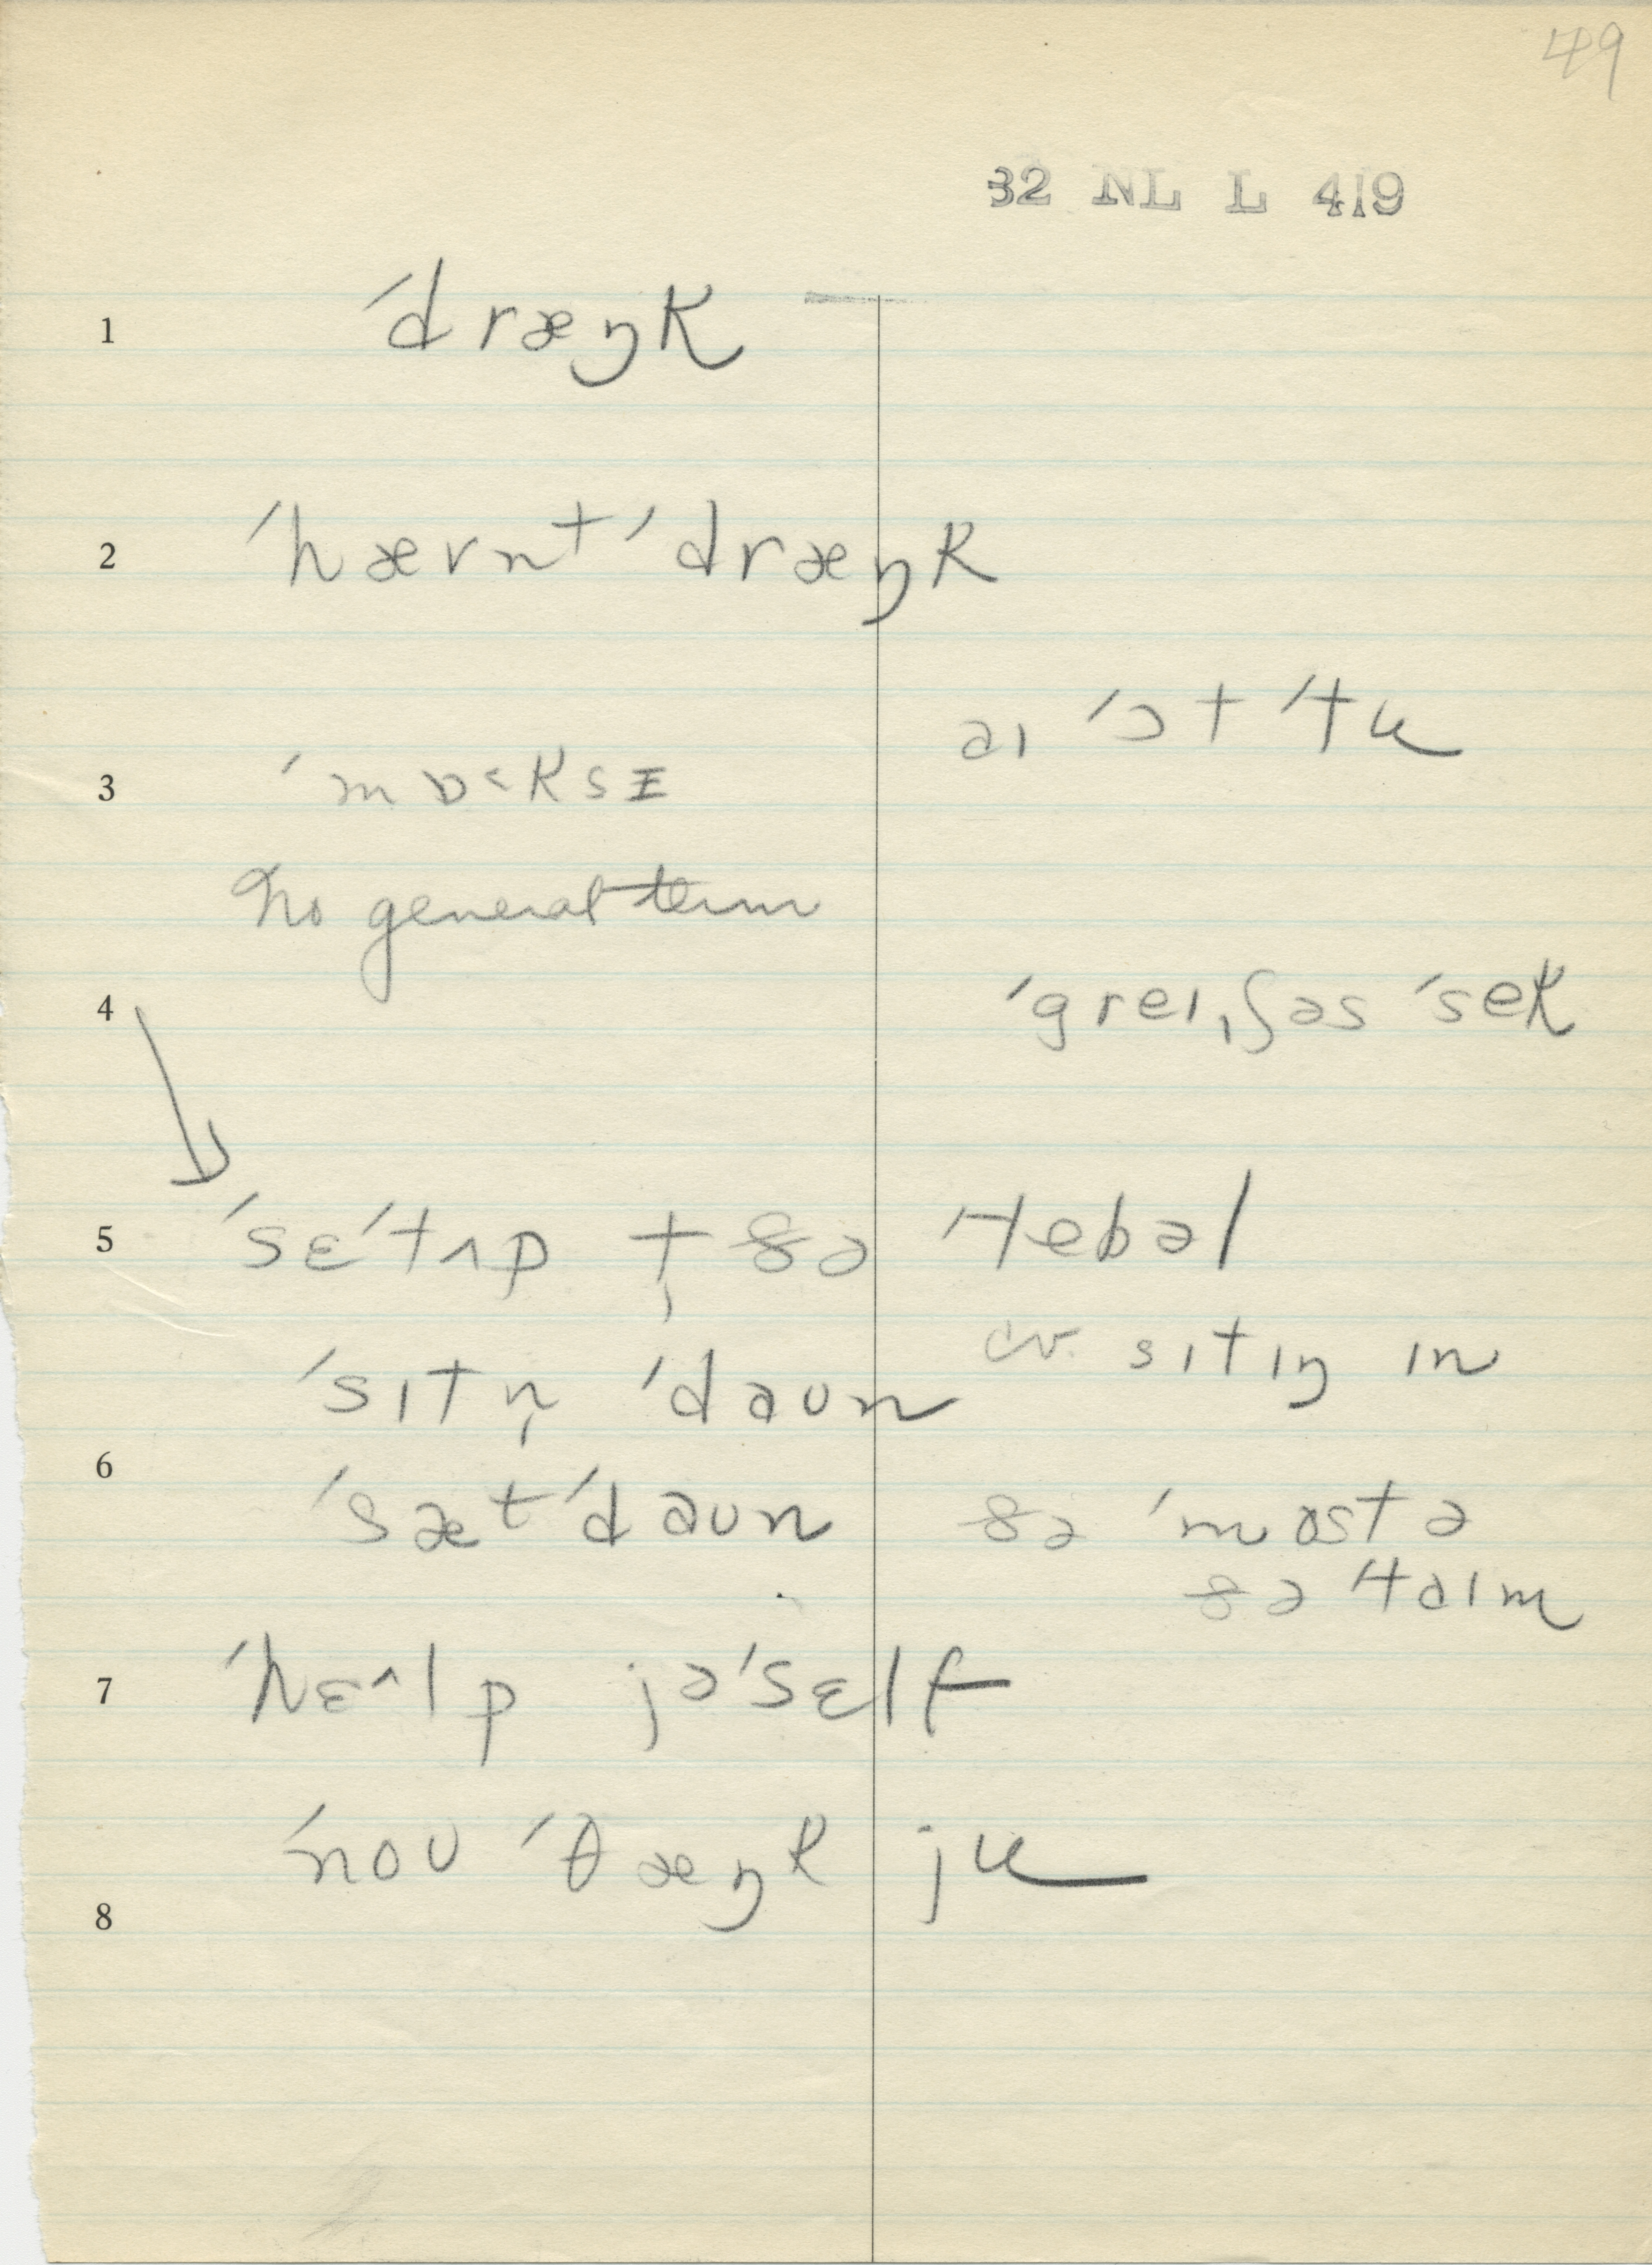 49
32 NL L 419
1 ˈdræŋk
2 ˈhævnt ˈdræŋk
aɪ ˈɔt ˈtu
3 ˈmɒ˂ksɪ
No general term
4 ˈgreɪˌʃəs ˈsek
5 ˈsɛˈtʌp t̩ ðə tebəl
cv. sɪtɪŋ ɪn
ˈsɪtn̩ ˈdaʊn
6 ˈsæt ˈdaʊn ðə ˈmostə
ðə taɪm
7 ˈhɛ˄lp jəˈsɛlf
ˈnoʊ ˈθæŋk ju
8